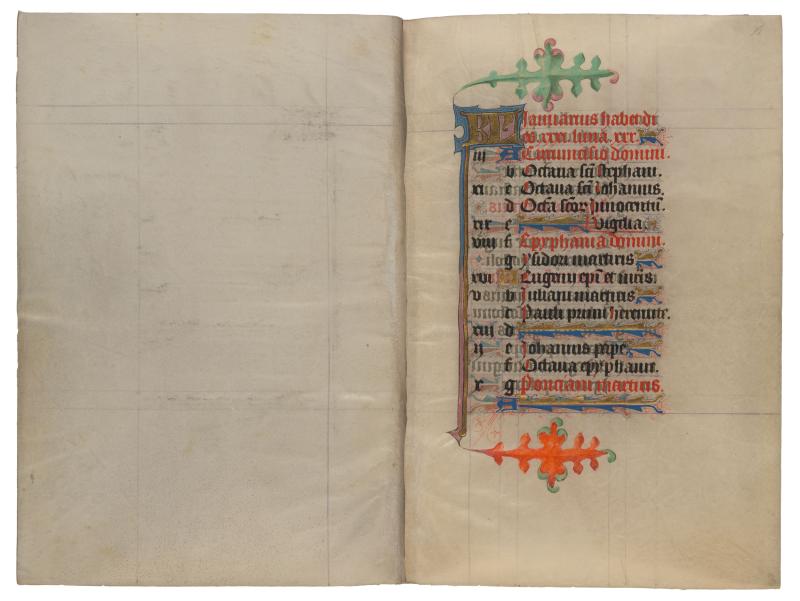 KL Januarius habet di
es xxxi luna xxx
iii A Circumcisio domini.
b Octaua sci stephani.
xi c Octaua sci Johannis.
d Octa scor Innocentu.
xix e Vigilia
viii f Epyphania domini.
g ysidori martiris
xvi Eugenij epi et mris
v b Juliani martiris
c Pauli primi heremite.
xiii d
ii e Johannis pape
f Octaua epyphanie.
x g Ponciani martiris.